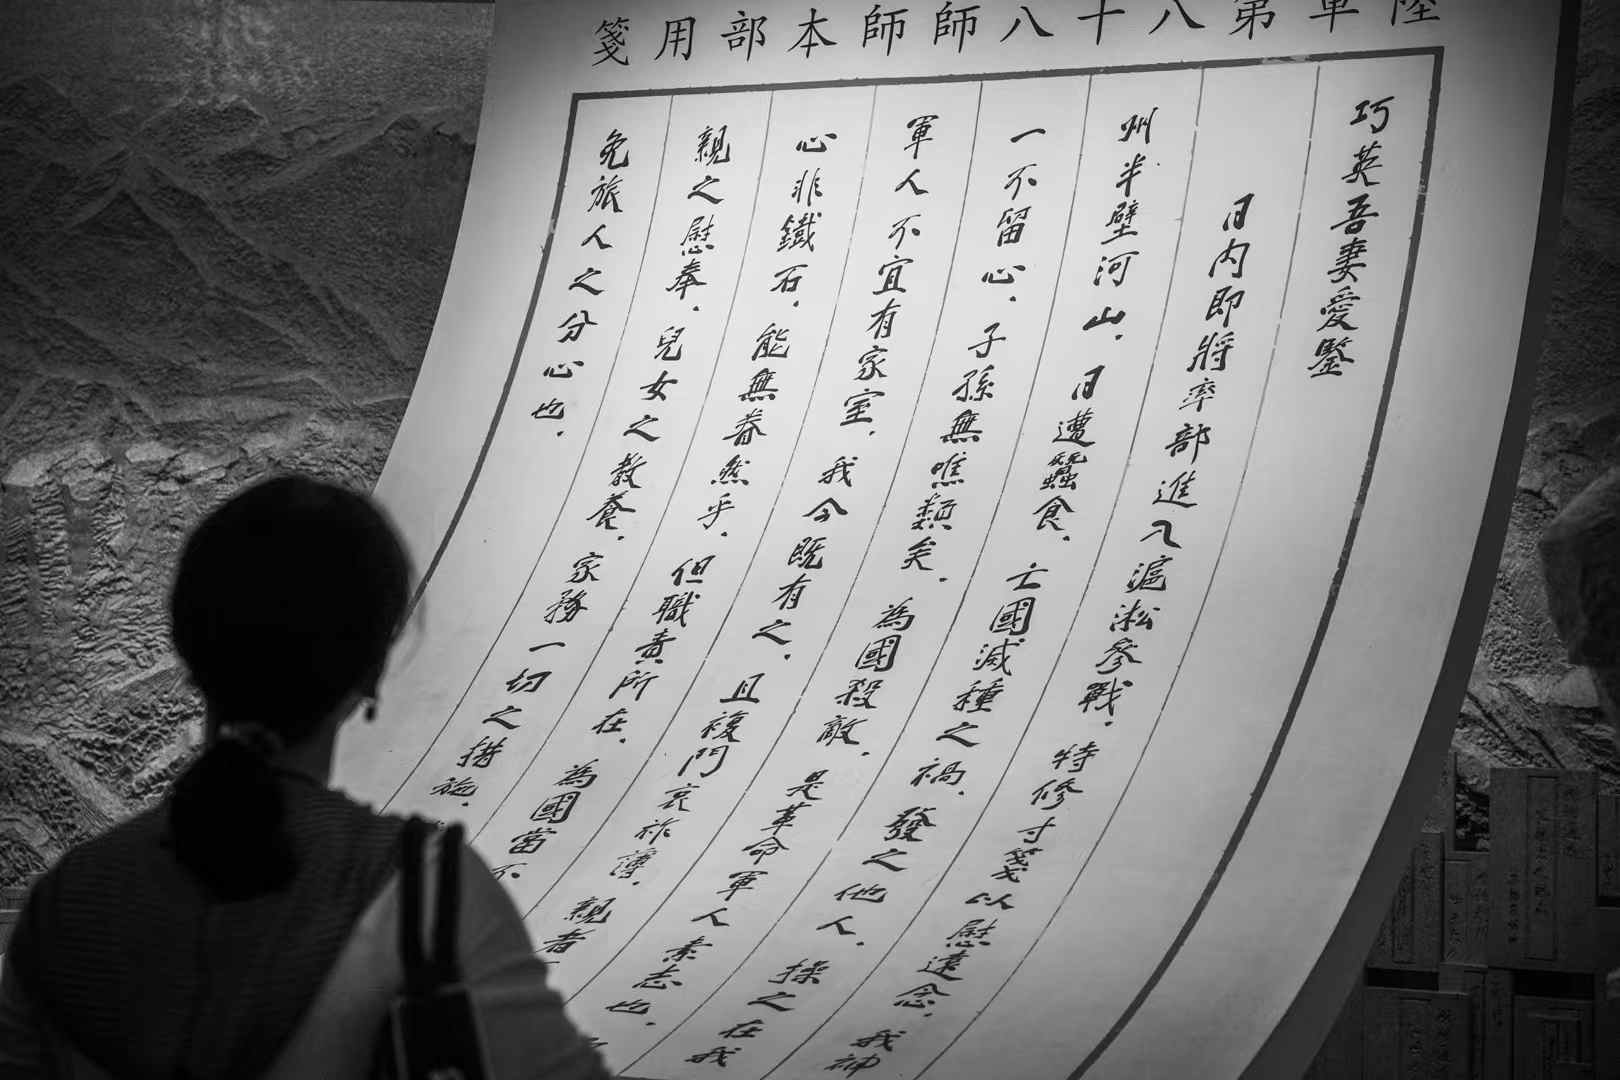 陸軍第八十八師師本部用箋
巧英吾妻愛鑒
日內即將率部進入滬淞參戰．特修寸箋以慰遠念．我神
州半壁河山．日遭蠶食．亡國滅種之禍．發之他人．操之在我
一不留心．子孫無噍類矣．為國殺敵．是革命軍人素志也．
軍人不宜有家室．我今既有之．且複門衰祚薄．親者
心非鐵石．能無眷然乎．但職責所在．為國當不
親之慰奉．兒女之教養．家務一切之措施．
免旅人之分心也．